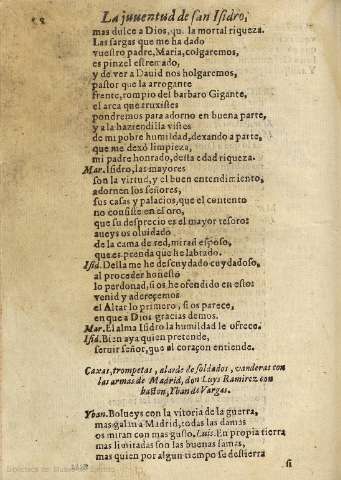 La juuentud de san Isidro,
mas dulce a Dios, qu. la mortal riqueza.
Las sargas que me ha dado
vuestro padre, Maria, colgaremos,
es pinzel estremado,
y de ver a Dauid nos holgaremos,
pastor que la arrogante
frente, rompio del barbaro Gigante,
el arca que truxistes
pondremos para adorno en buena parte,
y a la haziendilla vistes
de mi pobre humildad, dexando a parte,
que me dexò limpieza,
mi padre honrado, desta edad riqueza.
Mar. Isidro, las mayores
son la virtud, y el buen entendimiento,
adornen los señores,
sus casas y palacios, que el contento
no consiste en el oro,
que su desprecio es el mayor tesoro:
aueys os oluidado
de la cama de red, mirad esposo,
que es prenda que he labrado.
Isid. Della me he descuydado cuydadoso,
al proceder honesto
lo perdonad, si os he ofendido en esto:
venid y adereçemos
el Altar lo primero, si os parece,
en que a Dios gracias demos.
Mar. El alma Isidro la humildad le ofrece.
Isid. Bien aya quien pretende,
seruir señor, que al coraçon entiende.
Caxas, trompetas, alarde de soldados, vanderas con
las armas de Madrid, don Luys Ramirez con
baston, Yban de Vargas.
Yban. Bolueys con la vitoria de la guerra,
mas galan a Madrid, todas las damas
os miran con mas gusto. Luis. En propia tierra
mas limitadas son las buenas famas,
mas quien por algun tiempo se destierra
si